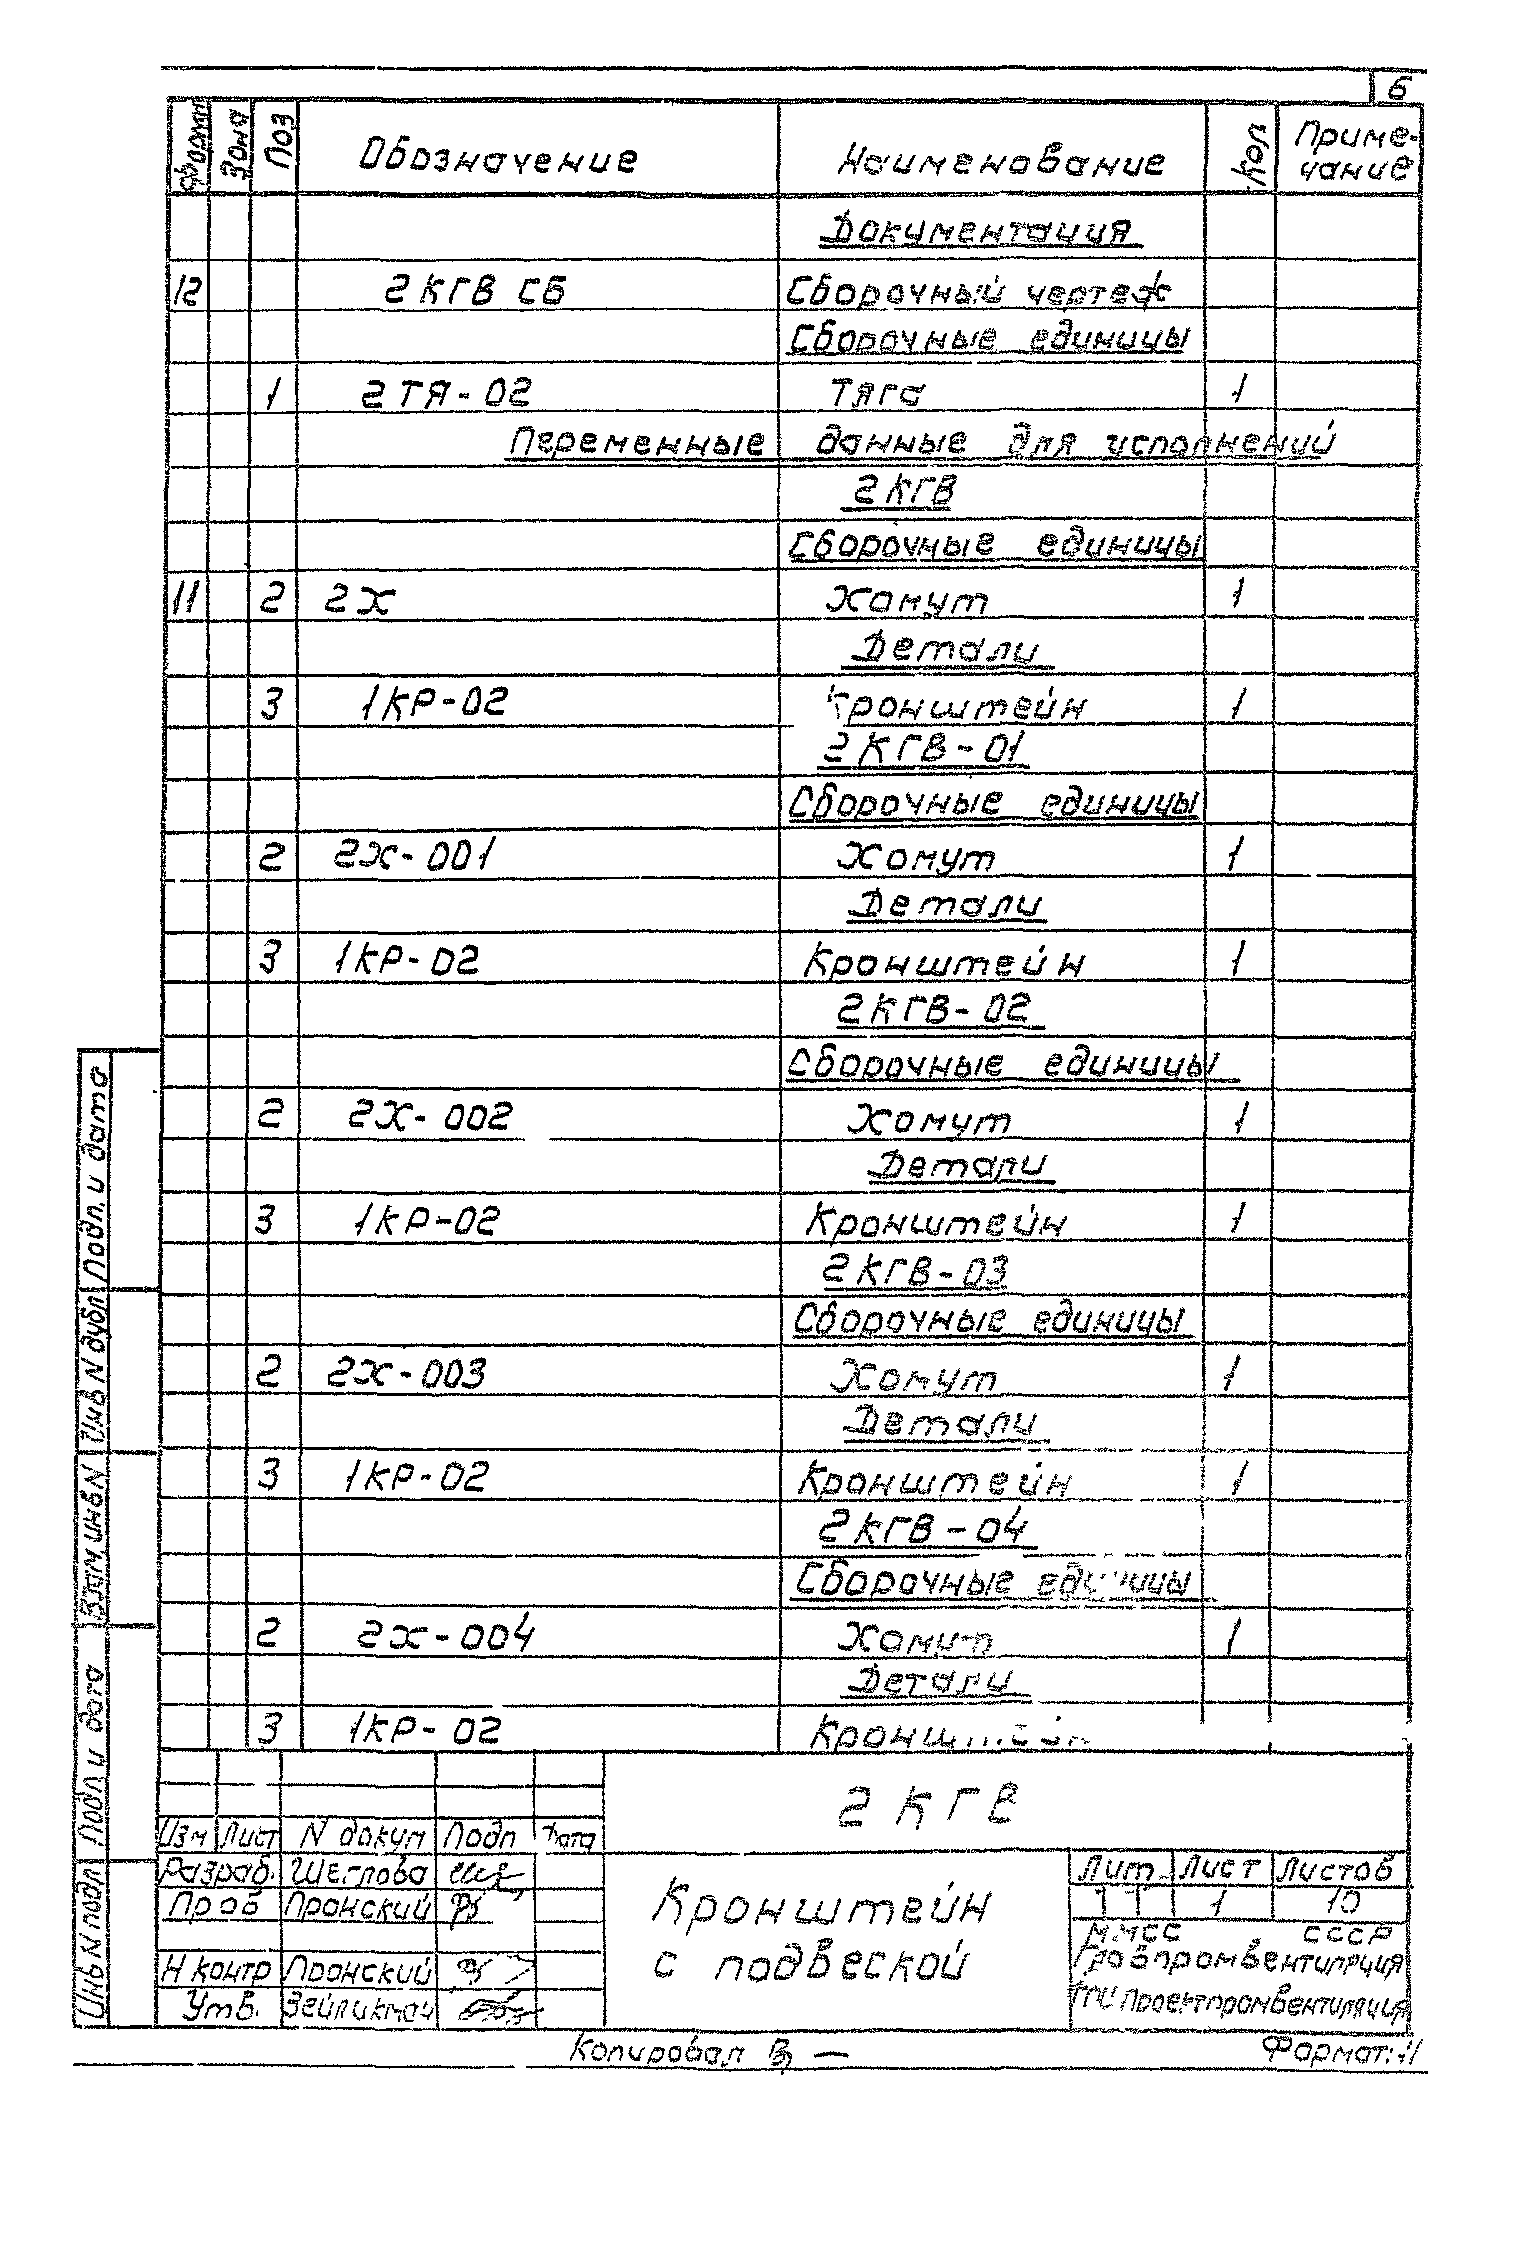 6
Формат Зона Поз Обозначение Наименование Кол Приме-
чание
Документация
12 2КГВ СБ Сборочный чертеж
Сборочные единицы
1 2ТЯ-02 Тяга 1
Переменные данные для исполнений
2КГВ
Сборочные единицы
11 2 2Х Хомут 1
Детали
3 1КР-02 Кронштейн 1
2КГВ-01
Сборочные единицы
2 2Х-001 Хомут 1
Детали
3 1КР-02 Кронштейн 1
2КГВ-02
Сборочные единицы
2 2Х-002 Хомут 1
Детали
3 1КР-02 Кронштейн 1
2КГВ-03
Сборочные единицы
2 2Х-003 Хомут 1
Детали
3 1КР-02 Кронштейн 1
2КГВ-04
Сборочные единицы
2 2Х-004 Хомут 1
Детали
3 1КР-02 Кронштейн
Подп. и дата
Инв N дубл
Взам инв N
Подп и дата
Инв N подл
2КГВ
Изм Лист N докум Подп Дата
Разраб. Щеглова
Пров Пронский
Н контр Пронский
Утв. Зейликман
Кронштейн
с подвеской
Лит Лист Листов
1 10
ММСС СССР
Главпромвентиляция
ГПИ Проектпромвентиляция
Копировал
Формат: 11